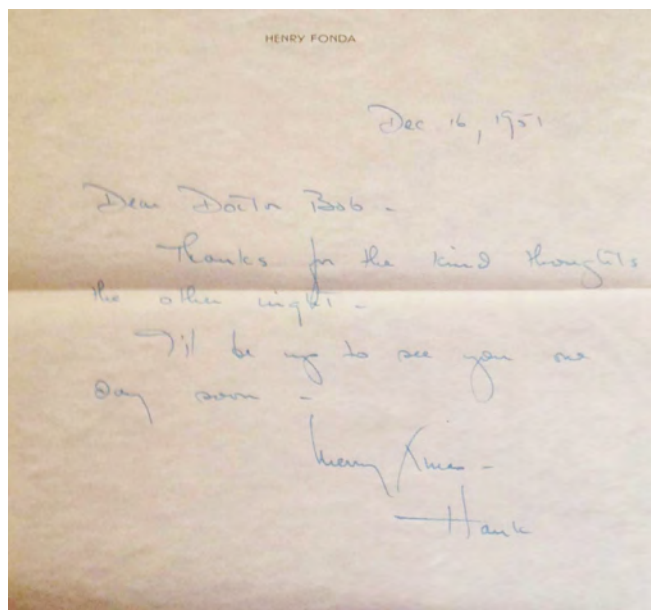 HENRY FONDA
Dec. 16, 1951
Dear Doctor Bob -
Thanks for the kind thoughts
the other night -
I'll be up to see you one
day soon -
Merry Xmas -
Hank